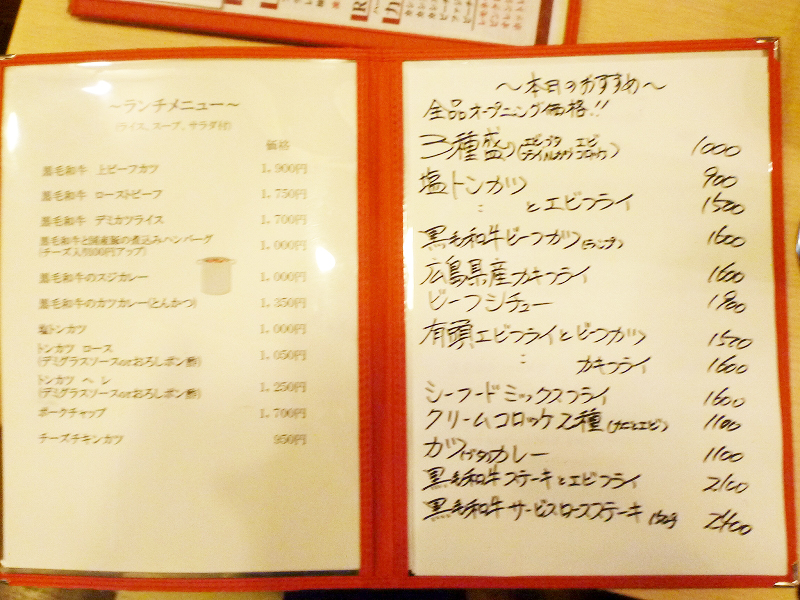 ～ランチメニュー～
(ライス、スープ、サラダ付)
価格
黒毛和牛 上ビーフカツ 1,900円
黒毛和牛 ローストビーフ 1,750円
黒毛和牛 デミカツライス 1,700円
黒毛和牛と国産豚の煮込みハンバーグ 1,000円
(チーズ入り100円アップ)
黒毛和牛のスジカレー 1,000円
黒毛和牛のカツカレー(とんかつ) 1,350円
塩トンカツ 1,000円
トンカツ ロース 1,050円
(デミグラスソースorおろしポン酢)
トンカツ ヘレ 1,250円
(デミグラスソースorおろしポン酢)
ポークチャップ 1,700円
チーズチキンカツ 950円
～本日のおすすめ～
全品オープニング価格!!
3種盛り 1000
塩トンカツ 900
〃 とエビフライ 1500
黒毛和牛ビーフカツ(ランプ) 1600
広島県産カキフライ 1600
ビーフシチュー 1900
有頭エビフライとビーフカツ 1500
〃 カキフライ 1600
シーフードミックスフライ 1600
クリームコロッケ2種(カニとエビ) 1100
カツ カレー 1100
黒毛和牛ステーキとエビフライ 2100
黒毛和牛サービスロースステーキ 150g 2400